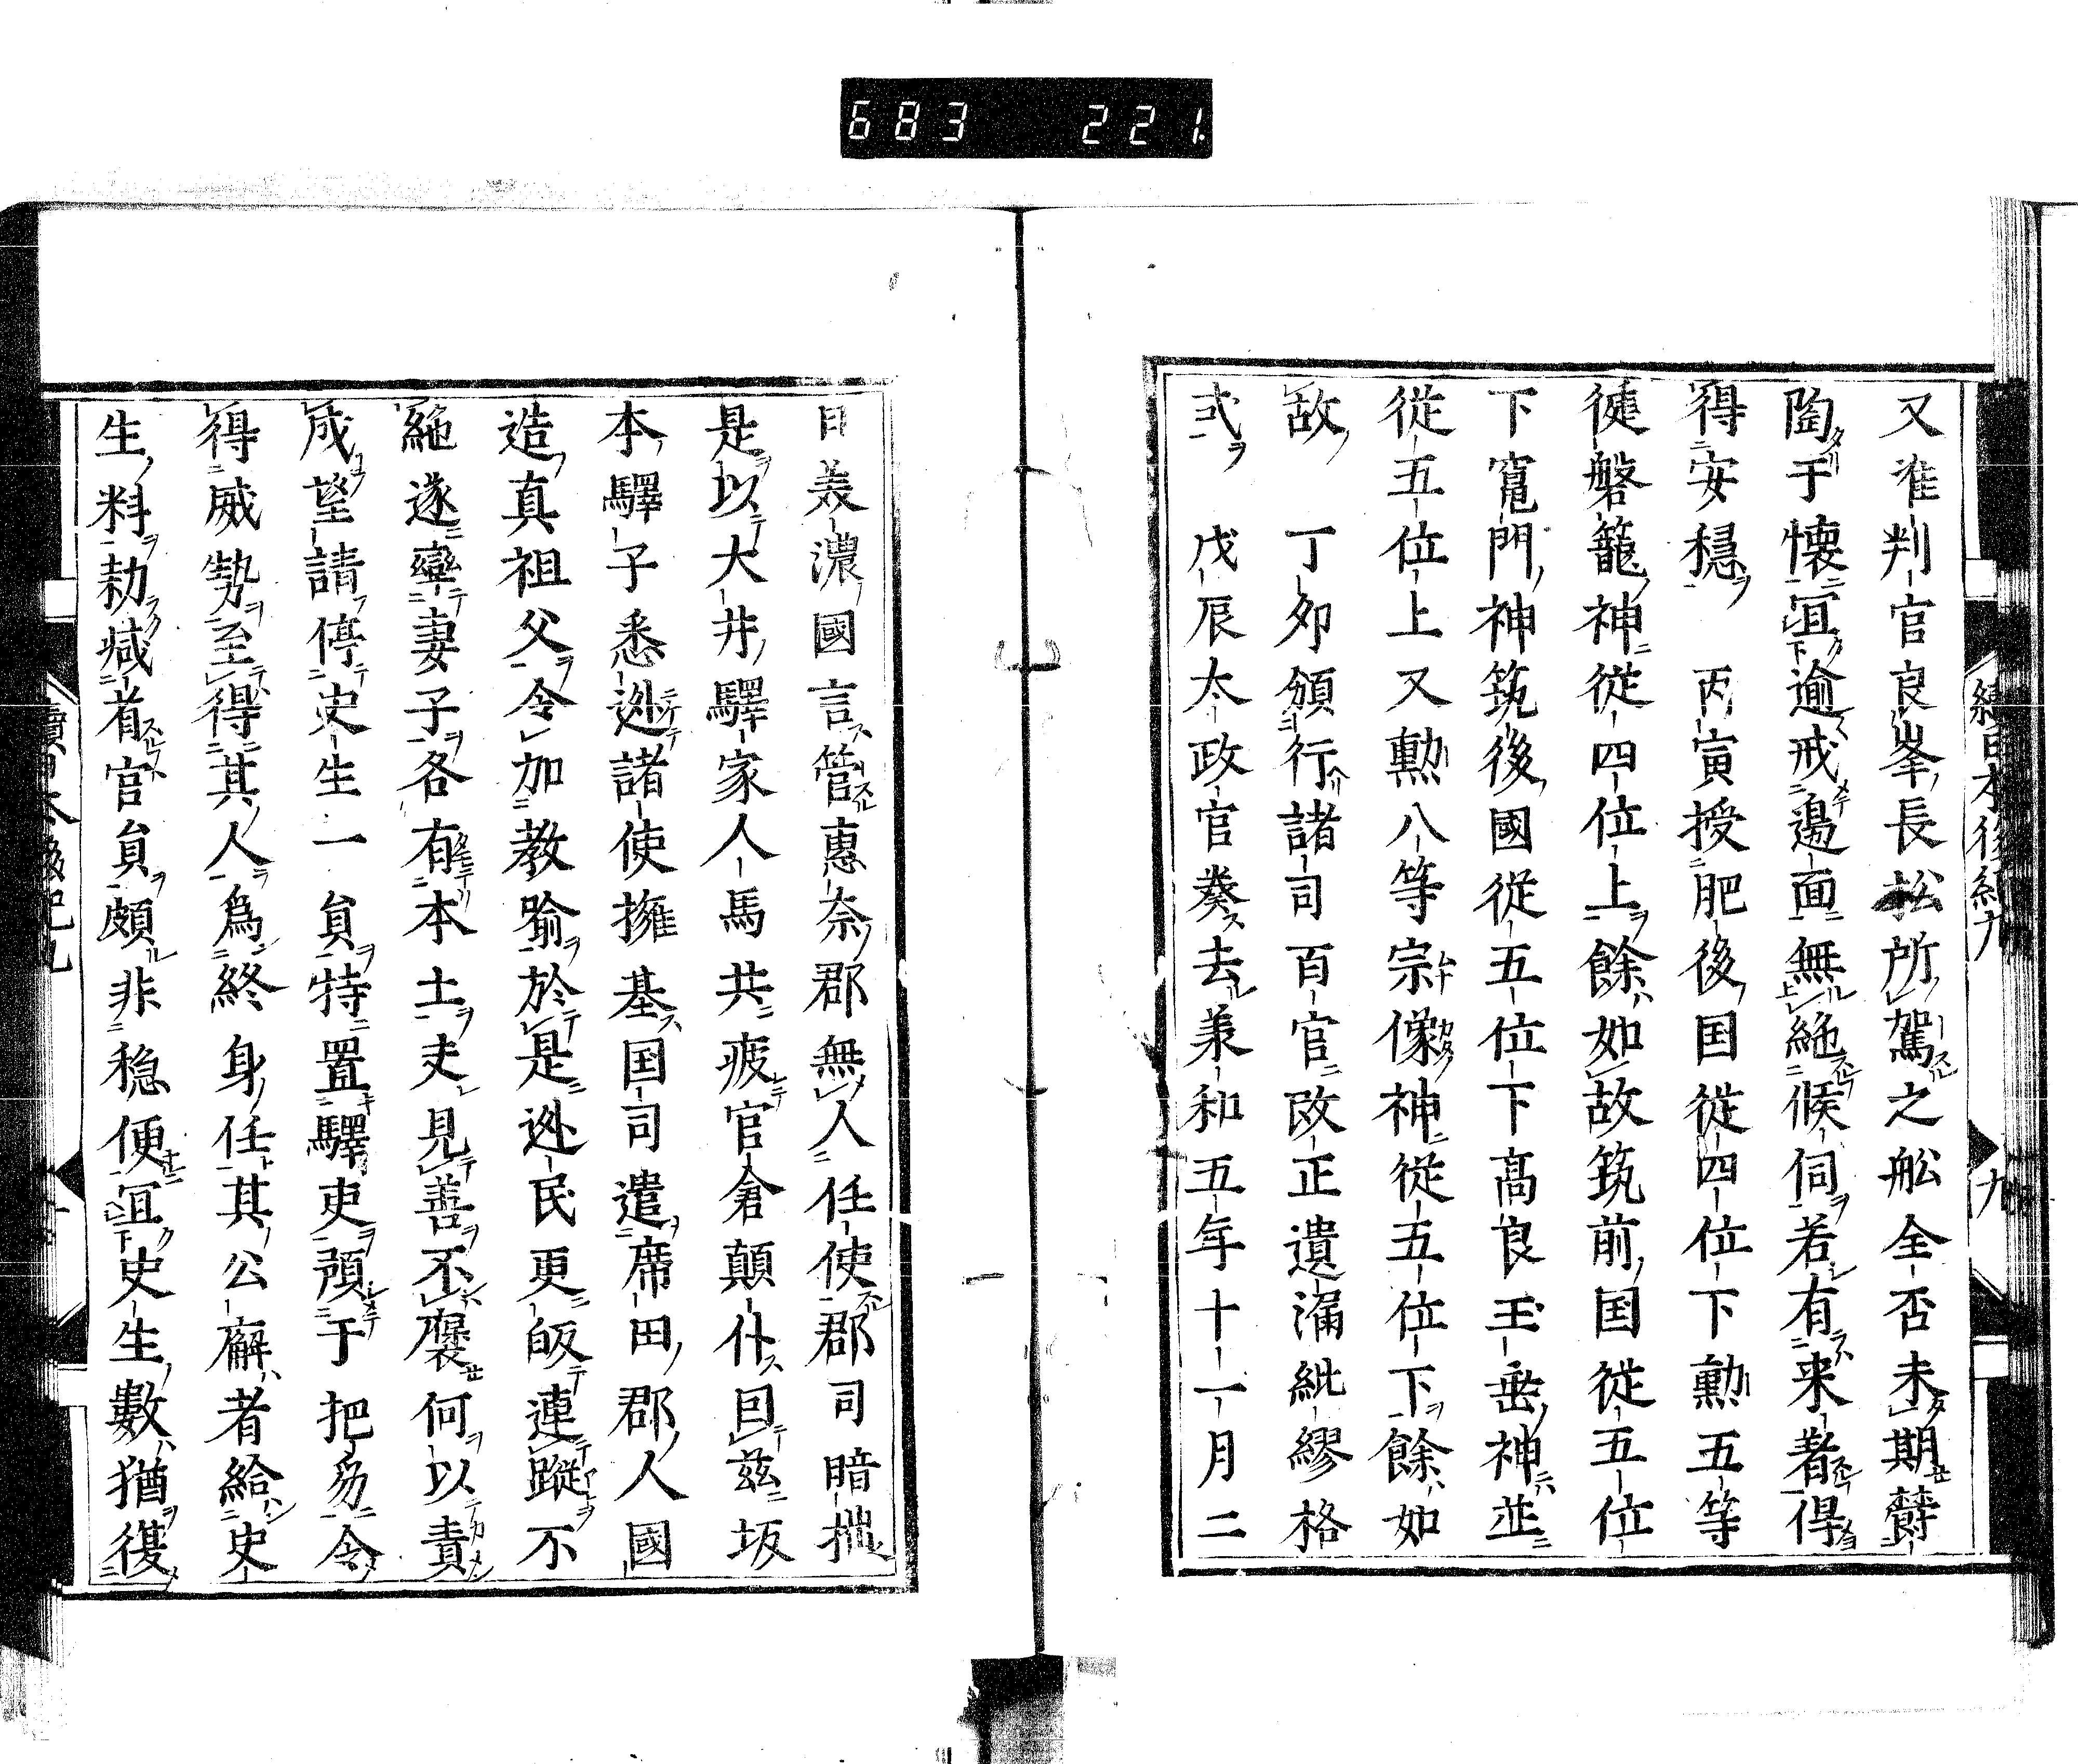 683 221
又准判官良岑長松所駕之舩全否未期欝
陶于懐冝逾戒邊面無絶候伺若有来者得
得安穏 丙寅授肥後国従四位下勲五等
健磐龍神従四位上餘如故筑前国従五位
下竃門神筑後國従五位下高良玉垂神並
従五位上又勲八等宗像神従五位下餘如
故 丁夘頒行諸司百官改正遺漏紕繆格
式 戊辰太政官奏去義和五年十一月二
日美濃國言管惠奈郡無人任使郡司暗拙
是以大井驛家人馬共疲官倉顛仆囙茲坂
本驛子悉逃諸使擁基国司遣席田郡人國
造真祖父令加教喩於是逃民更皈連蹤不
絶遂率妻子各有本土夫見善不襃何以責
成望請停史生一負特置驛吏預于把笏令
得威勢至得其人為終身任其公廨者給史
生料劾臧者官負頗非稳便冝史生數猶復
續日本後紀九 九